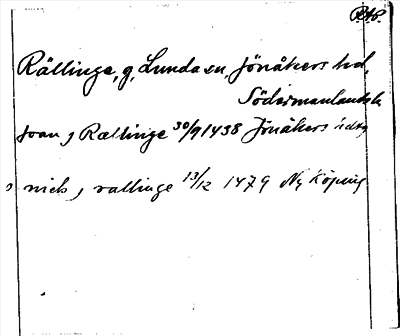 RAP.
Rällinge, g, Lunda sn, Jönåkers hd,
Södermanlands l.
joan j Rællinge 30/9 1438 Jönåkers hdsg
nich j rallinge 13/12 1479 Nyköping